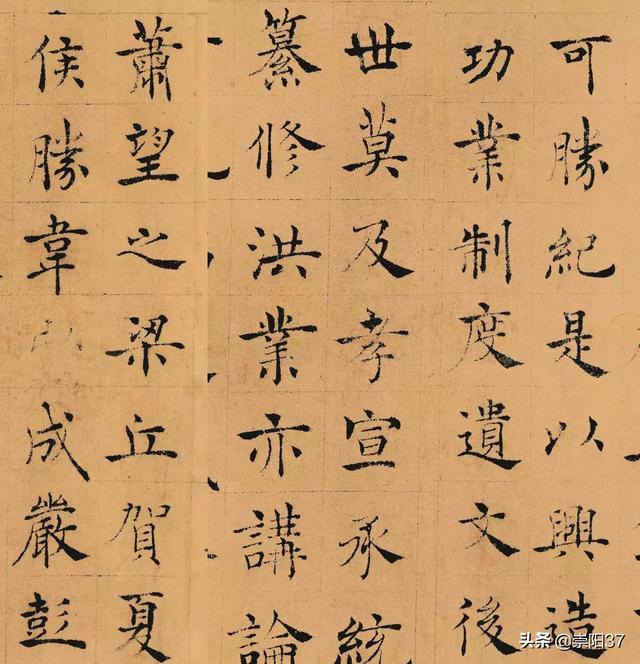 可勝紀是以興造
功業制度遺文後
世莫及孝宣承統
纂修洪業亦講論
蕭望之梁丘賀夏
侯勝韋成嚴彭
头条 @崇阳37